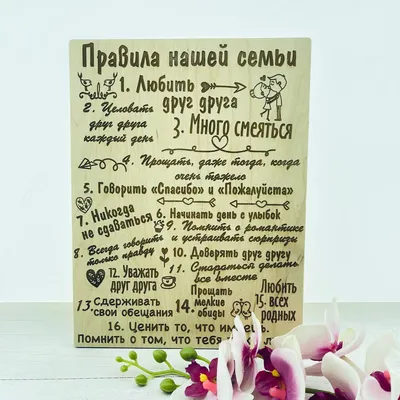 Правила нашей семьи
1. Любить
друг друга
2. Целовать
друг друга
каждый день
3. Много смеяться
4. Прощать, даже тогда, когда
очень тяжело
5. Говорить «Спасибо» и «Пожалуйста»
6. Начинать день с улыбок
7. Никогда
не сдаваться
8. Всегда говорить
только правду
9. Помнить о романтике
и устраивать сюрпризы
10. Доверять друг другу
11. Стараться делать
все вместе
12. Уважать
друг друга
13. Сдерживать
свои обещания
14. Прощать
мелкие
обиды
15. Любить
всех
родных
16. Ценить то, что
Помнить о том, что тебя